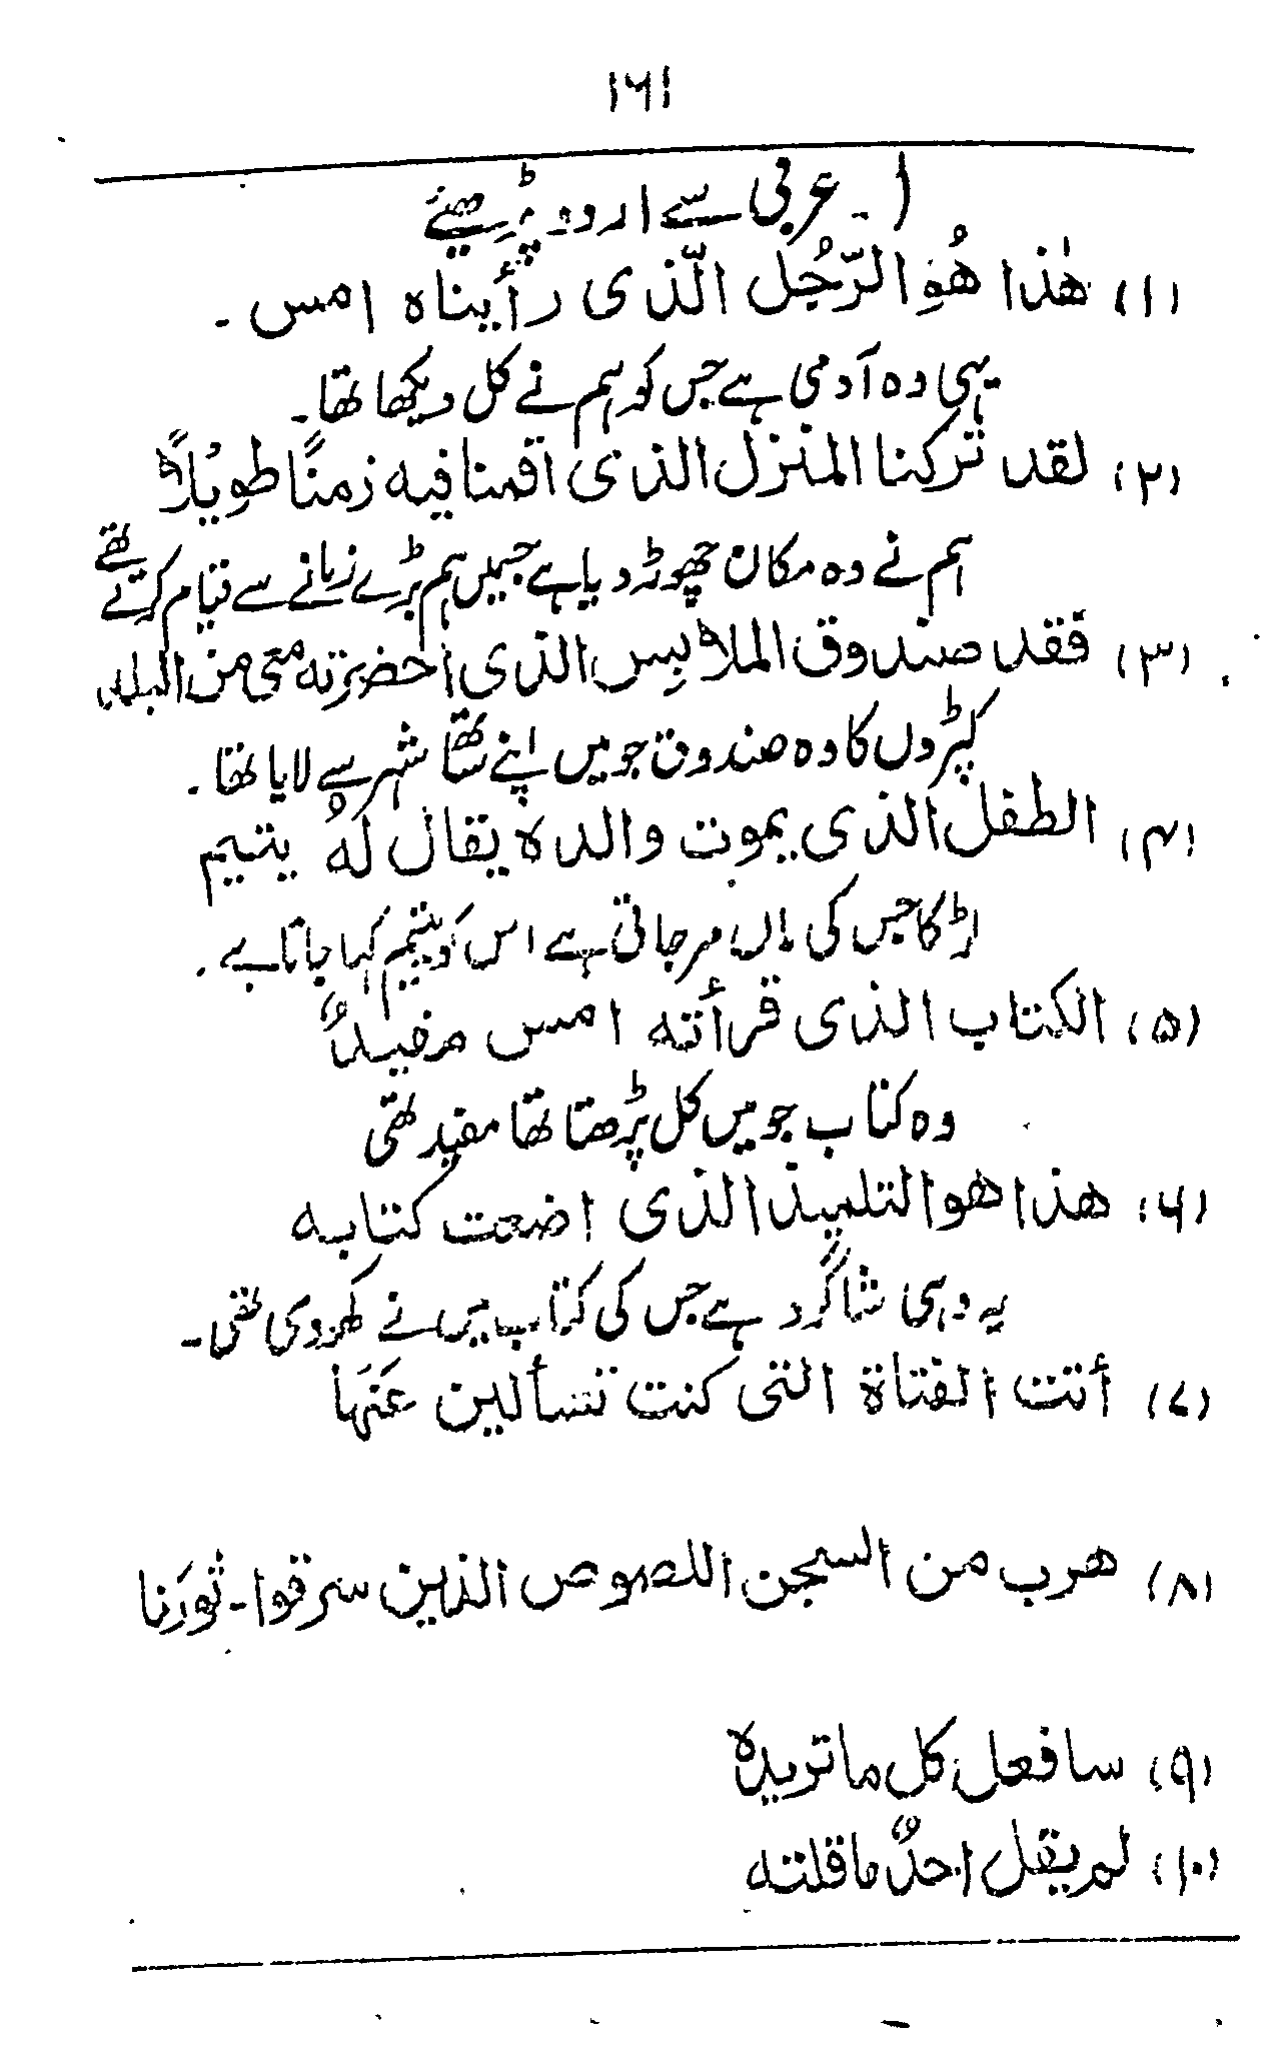 ۱۶۱
۱۔ عربی سے اردو پڑھئے
(۱) هٰذا هُو الرّجُل الّذی رأیناہ امس ۔
یہی وہ آدمی ہے جس کو ہم نے کل دیکھا تھا۔
(۲) لقد ترکنا المنزل الذی اقمنا فیه زمنًا طویلاً
ہم نے وہ مکان چھوڑ دیا ہے جسمیں ہم بڑے زمانے سے قیام کرتے تھے
(۳) فقد صندوق الملابس الذی احضرته معی من البلد
کپڑوں کا وہ صندوق جو میں اپنے ساتھ شہر سے لایا تھا۔
(۴) الطفل الذی یموت والدہ یقال لهُ یتیم
لڑکا جس کی ماں مر جاتی ہے اس کو یتیم کہا جاتا ہے ۔
(۵) الکتاب الذی قرأته امس مفیدٌ
وہ کتاب جو میں کل پڑھتا تھا مفید تھی
(۶) هذا هو التلمیذ الذی اضعت کتابه
یہ وہی شاگرد ہے جس کی کتاب میں نے کھو دی تھی۔
(۷) أنت الفتاة التی کنت تسألین عَنهَا
(۸) هرب من السجن اللصوص الذین سرقوا۔ ثورَنا
(۹) سافعل کل ما تریدہ
(۱۰) لم یقل احدٌ ما قلته